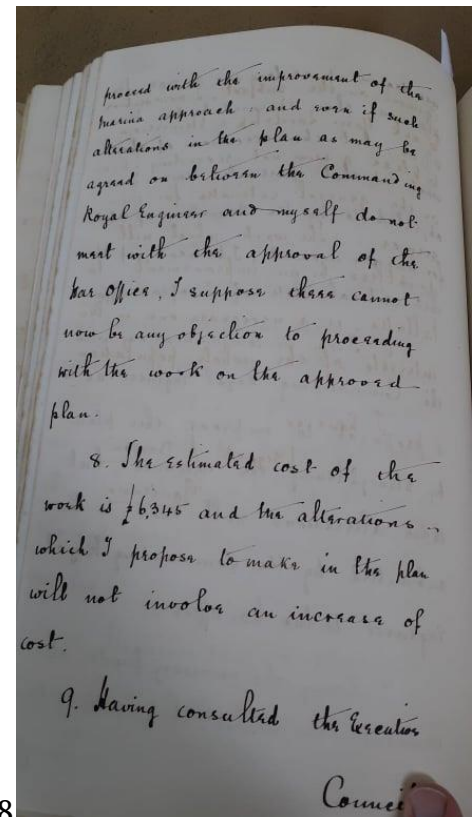 proceed with the improvement of the
Marina approach, and even if such
alterations in the plan as may be
agreed on between the Commanding
Royal Engineer and myself do not
meet with the approval of the
War Office, I suppose there cannot
now be any objection to proceeding
with the work on the approved
plan.
8. The estimated cost of the
work is £6,345 and the alterations
which I propose to make in the plan
will not involve an increase of
cost.
9. Having consulted the Executive
Council
8